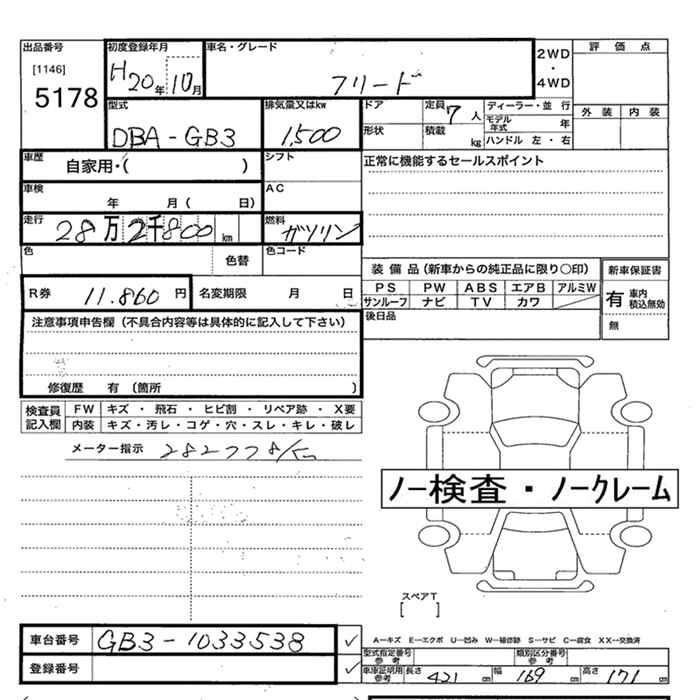 出品番号 初度登録年月 車名・グレード 2WD 評価点
[1146] H20年10月 フリード ・
5178 4WD
型式 排気量又はkw ドア 定員 7人 ディーラー・並行 外装 内装
DBA-GB3 1,500 形状 積載 kg モデル年式 年
ハンドル 左・右
車歴 自家用・( ) シフト 正常に機能するセールスポイント
車検 年 月( 日) AC
走行 28万2千800km 燃料 ガソリン
色 色替 色コード
装備品(新車からの純正品に限り○印) 新車保証書
R券 11.860円 名変期限 月 日 PS PW ABS エアB アルミW 有 車内積込無効
サンルーフ ナビ TV カワ
注意事項申告欄(不具合内容等は具体的に記入して下さい) 後日品 無
修復歴 有 (箇所 )
検査員記入欄 FW キズ・飛石・ヒビ割・リペア跡・X要
内装 キズ・汚レ・コゲ・穴・スレ・キレ・破レ
メーター指示 282778
ノー検査・ノークレーム
スペアT
[ ]
車台番号 GB3-1033538 ✓ A―キズ E―エクボ U―凹み W―補修跡 S―サビ C―腐食 XX―交換済
型式指定番号 参考 類別区分番号 参考
登録番号 ✓ 車庫証明用参考 長さ 421cm 幅 169cm 高さ 171cm